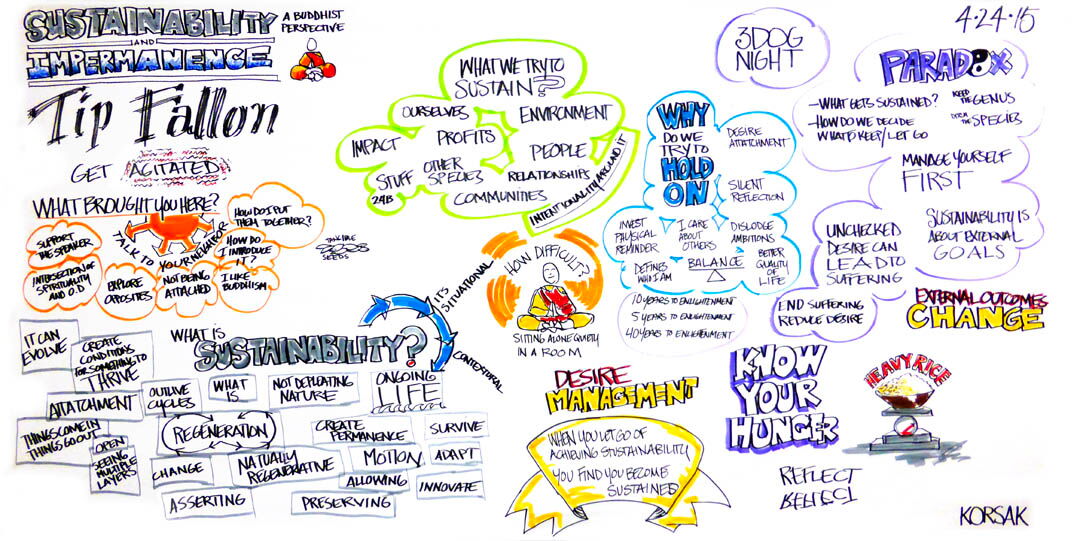 SUSTAINABILITY
AND
IMPERMANENCE
A BUDDHIST
PERSPECTIVE
Tip Fallon
GET AGITATED
WHAT BROUGHT YOU HERE?
TALK TO YOUR NEIGHBOR
SUPPORT
THE SPEAKER
INTERSECTION OF
SPIRITUALITY
AND O.D
EXPLORE
OPPOSITES
NOT BEING
ATTACHED
I LIKE
BUDDHISM
HOW DO
I INTRODUCE
HOW DO I PUT
THEM TOGETHER?
SEEDS
WHAT WE TRY TO
SUSTAIN?
OURSELVES
ENVIRONMENT
IMPACT
PROFITS
PEOPLE
STUFF
24B
OTHER
SPECIES
RELATIONSHIPS
COMMUNITIES
INTENTIONALITY AROUND IT
3 DOG
NIGHT
4.24.15
WHY
DO WE
TRY TO
HOLD
ON
DESIRE
ATTATCHMENT
SILENT
REFLECTION
INVEST
PHYSICAL
REMINDER
I CARE
ABOUT
OTHERS
DISLODGE
AMBITIONS
DEFINES
WHO I AM
BALANCE
BETTER
QUALITY
OF
LIFE
10 YEARS TO ENLIGHTENMENT
5 YEARS TO ENLIGHTENMENT
40 YEARS TO ENLIGHTENMENT
PARADOX
-WHAT GETS SUSTAINED?
-HOW DO WE DECIDE
WHAT TO KEEP/LET GO
KEEP
THE GENUS
DITCH
THE SPECIES
MANAGE YOURSELF
FIRST
SUSTAINABILITY IS
ABOUT EXTERNAL
GOALS
UNCHECKED
DESIRE CAN
LEAD TO
SUFFERING
END SUFFERING
REDUCE DESIRE
EXTERNAL OUTCOMES
CHANGE
HOW DIFFICULT?
SITTING ALONE QUIETLY
IN A ROOM
WHAT IS
SUSTAINABILITY?
ITS SITUATIONAL
CONTEXTUAL
IT CAN
EVOLVE
CREATE
CONDITIONS
FOR SOMETHING TO
THRIVE
ATTATCHMENT
THINGS COME IN
THINGS GO OUT
OPEN
SEEING
MULTIPLE
LAYERS
OUTLIVE
CYCLES
WHAT
IS
NOT DEPLEATING
NATURE
ONGOING
LIFE
REGENERATION
CREATE
PERMANENCE
SURVIVE
CHANGE
NATUALLY
REGENERATIVE
MOTION
ADAPT
ALLOWING
INNOVATE
ASSERTING
PRESERVING
DESIRE
MANAGEMENT
WHEN YOU LET GO OF
ACHIEVING SUSTAINABILITY
YOU FIND YOU BECOME
SUSTAINED
KNOW
YOUR
HUNGER
HEAVY RICE
REFLECT
REFLECT
KORSAK